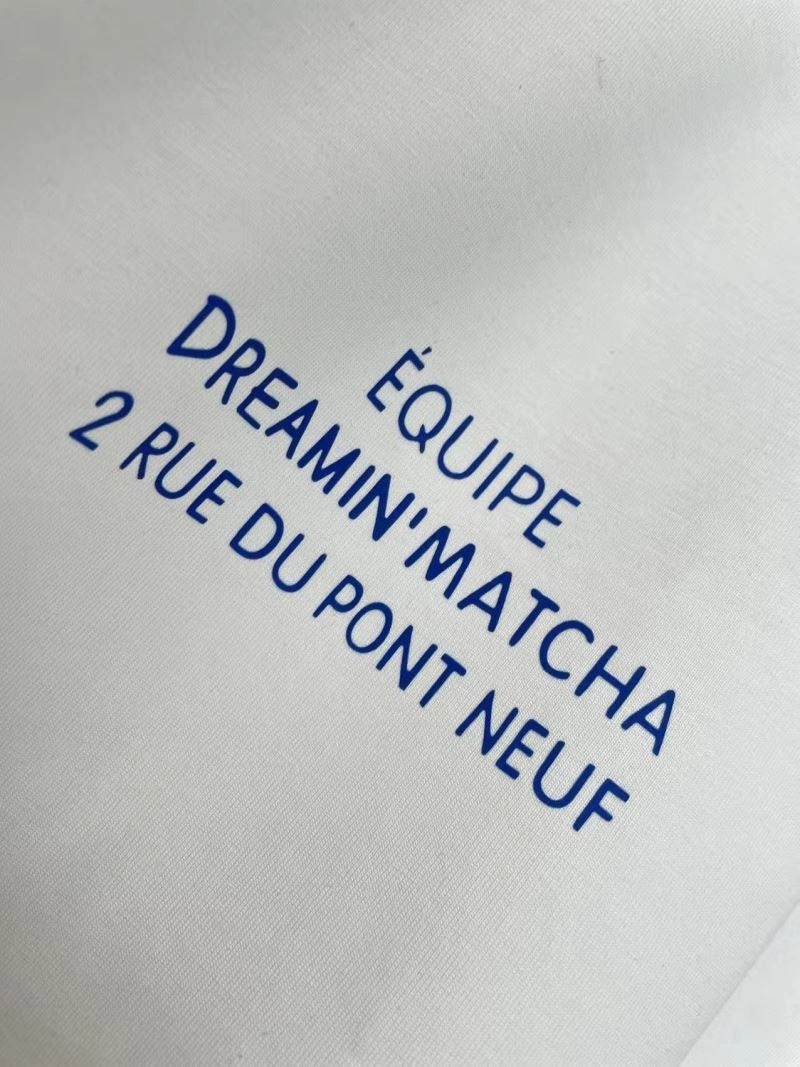 ÉQUIPE
DREAMIN'MATCHA
2 RUE DU PONT NEUF